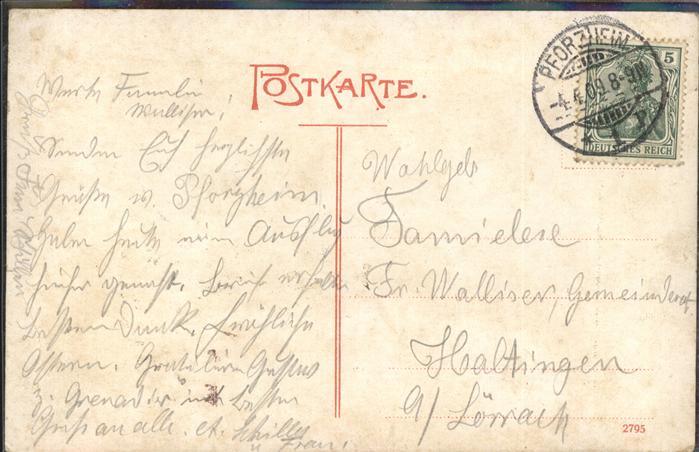 POSTKARTE.
PFORZHEIM
4.4.09.8-9N
5
DEUTSCHES REICH
Werte Familie
Walliser!
Senden Euch herzlichste
Grüße v. Pforzheim.
Haben heute einen Ausflug
hieher gemacht. Brief erhalten
besten Dank. Fröhliche
Ostern. Gratuliere Gustav
z. Grenadier und besten
Gruß an alle. A. Schiller
u. Frau.
Wohlgeb
Familie
Fr. Walliser, Gemeinderat
Haltingen
a/ Lörrach
2795